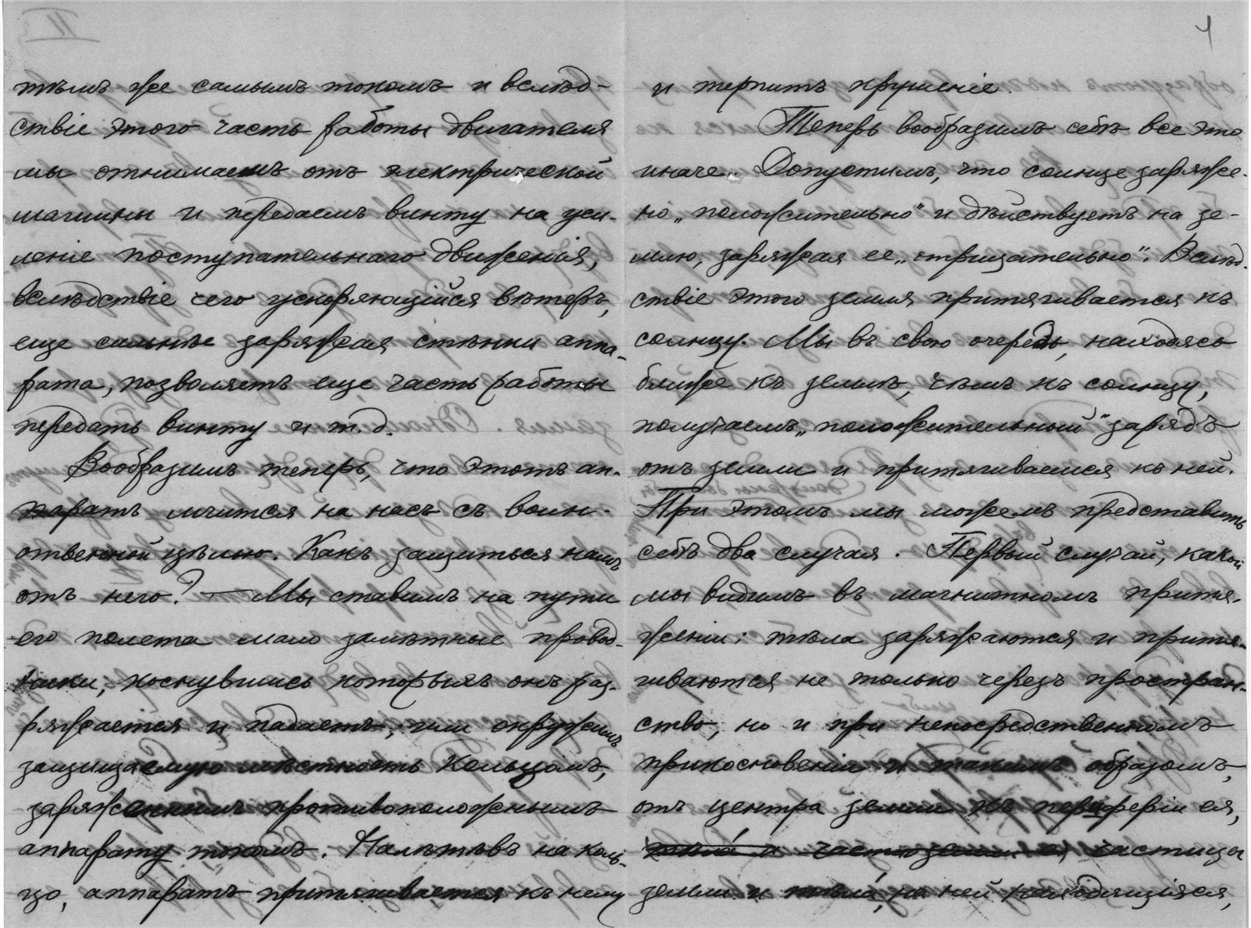 II
тѣмъ же самымъ токомъ и вслѣд-
ствіе этого часть работы двигателя
мы отнимаемъ отъ электрической
машины и передаемъ винту на уси-
леніе поступательнаго движенія,
вслѣдствіе чего ускоряющійся вѣтеръ,
еще сильнѣе заряжая стѣнки аппа-
рата, позволяетъ еще часть работы
передать винту и т.д.
Вообразимъ теперь, что этотъ ап-
паратъ мчится на насъ съ воин-
ственной цѣлью. Какъ защиться намъ
отъ него? — Мы ставимъ на пути
его полета мало замѣтные провод-
ники, коснувшись которыхъ онъ раз-
ряжается и падаетъ, или окружимъ
защищаемую мѣстность кольцомъ,
заряженнымъ противоположнымъ
аппарату токомъ. Налѣтѣвъ на коль-
цо, аппаратъ притягивается къ нему
и терпитъ крушеніе.
Теперь вообразимъ себѣ все это
иначе. Допустимъ, что солнце заряже-
но „положительно“ и дѣйствуетъ на зе-
млю, заряжая ее „отрицательно“. Вслѣд-
ствіе этого земля притягивается къ
солнцу. Мы въ свою очередь, находясь
ближе къ землѣ, чѣмъ къ солнцу,
получаемъ „положительный“ зарядъ
отъ земли и притягиваемся къ ней.
При этомъ мы можемъ представить
себѣ два случая. Первый случай, какой
мы видимъ въ магнитномъ притя-
женіи: тѣла заряжаются и притя-
гиваются не только черезъ простран-
ство, но и при непосредственномъ
прикосновеніи и такимъ образомъ,
отъ центра земли къ периферіи ея,
частицы
земли и тѣла, на ней находящіяся,